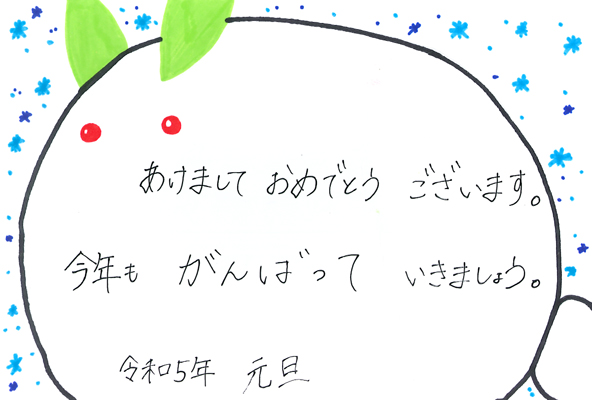 あけまして おめでとう ございます。
今年も がんばって いきましょう。
令和5年 元旦